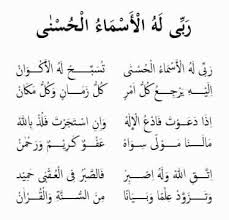 رَبِّى لَهُ الْأَسْمَاءُ الْحُسْنٰى
رَبِّى لَهُ الْأَسْمَاءُ الْحُسْنٰى تُسَبِّحُ لَهُ الْأَكْوَانُ
إِلَيْهِ يَرْجَعُ كُلُّ أَمْرٍ كُلُّ زَمَانٍ وَكُلُّ مَكَانٍ
إِذَا دَعَوْتَ فَادْعُ الْإِلٰهَ وَإِنِ اسْتَجَرْتَ فَلُذْ بِاللهِ
مَالَنَا مَوْلًى سِوَاهُ عَفُوٌّ كَرِيْمٌ وَرَحْمٰنُ
اِتَّقِ اللهَ وَلَهُ اصْبِرْ فَالصَّبْرُ فِى الْعُقْبٰى حَمِيْدٌ
وَتَزَوَّدْ عِلْمًا وَبَيَانًا مِنَ السُّنَّةِ وَالْقُرْآنِ